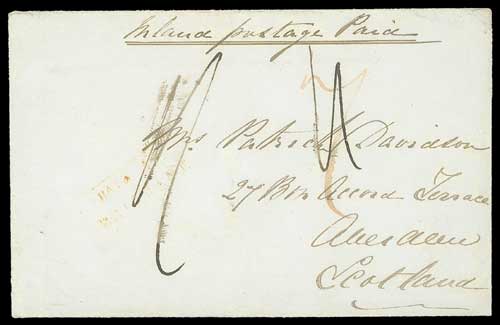 Inland postage Paid
Mrs Patrick Davidson
27 Bon Accord Terrace
Aberdeen
Scotland